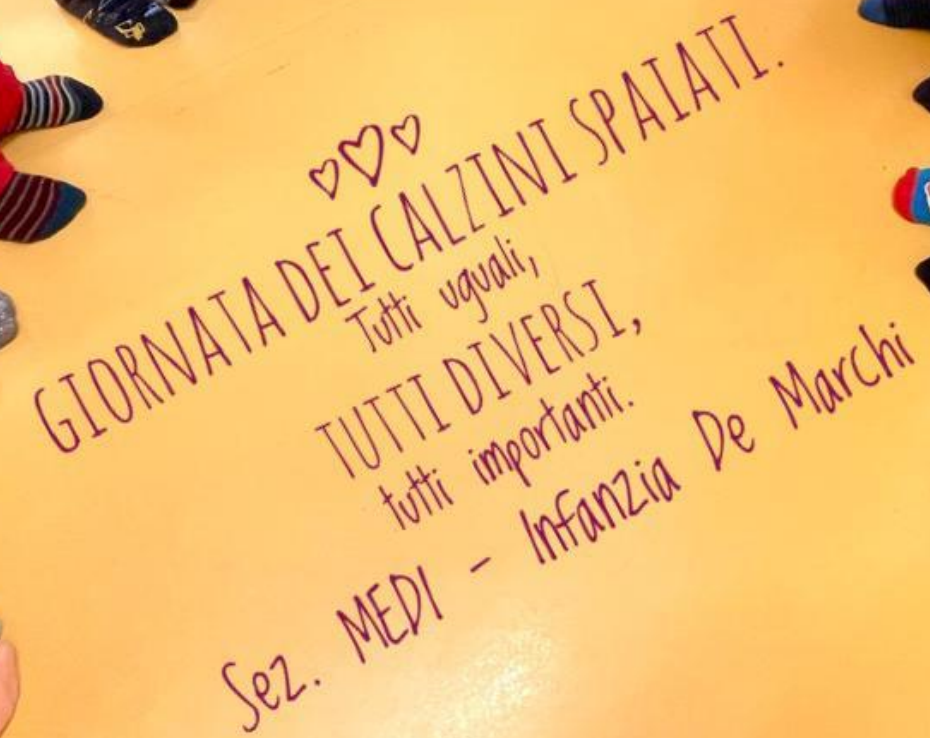 GIORNATA DEI CALZINI SPAIATI.
Tutti uguali,
TUTTI DIVERSI,
tutti importanti.
Sez. MEDI - Infanzia De Marchi